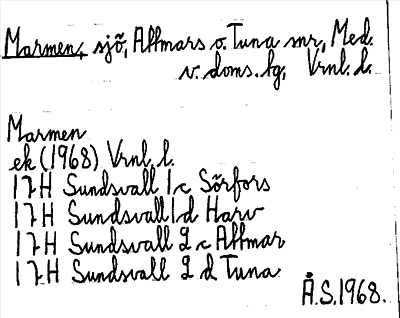 Marmen, sjö, Attmars o. Tuna snr, Med.
v. doms. lg, Vrnl. l.
Marmen
ek (1968) Vrnl. l.
17H Sundsvall 1c Sörfors
17H Sundsvall 1d Harv
17H Sundsvall 2c Attmar
17H Sundsvall 2d Tuna
Å.S. 1968.